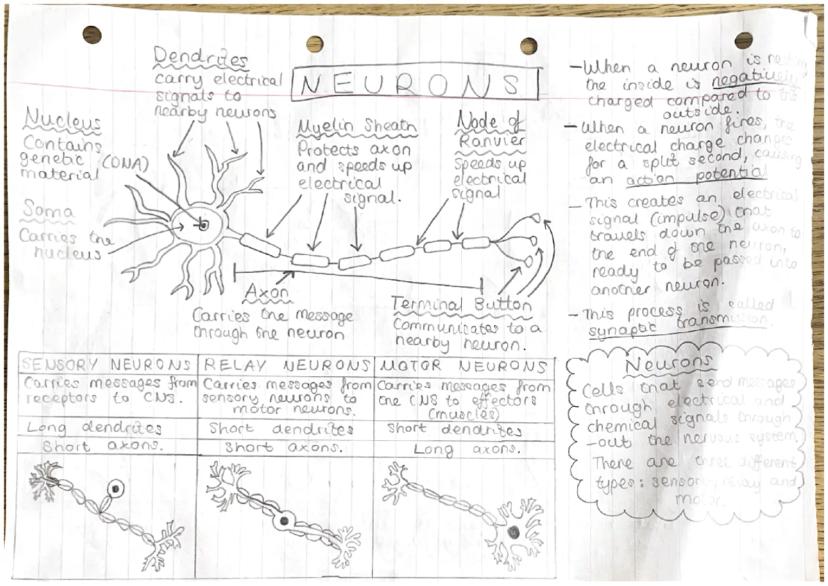 NEURONS
Dendrites
carry electrical
signals to
nearby neurons
Nucleus
Contains
genetic (DNA)
material
Soma
Carries the
nucleus
Myelin Sheath
Protects axon
and speeds up
electrical
signal.
Node of
Ranvier
Speeds up
electrical
signal
Axon
Carries the message
through the neuron
Terminal Button
Communicates to a
nearby neuron.
- When a neuron is
the inside is negatively
charged compared to the
outside.
- When a neuron fires, the
electrical charge changes
for a split second, causing
an action potential
- This creates an electrical
signal (impulse) that
travels down the axon to
the end of the neuron,
ready to be passed into
another neuron.
- This process is called
synaptic transmission.
SENSORY NEURONS
Carries messages from
receptors to CNS.
Long dendrites
Short axons.
RELAY NEURONS
Carries messages from
sensory neurons to
motor neurons.
Short dendrites
Short axons.
MOTOR NEURONS
Carries messages from
the CNS to effectors
(muscles)
Short dendrites
Long axons.
Neurons
Cells that send messages
through electrical and
chemical signals through
-out the nervous system
There are three different
types: sensory, relay and
motor.